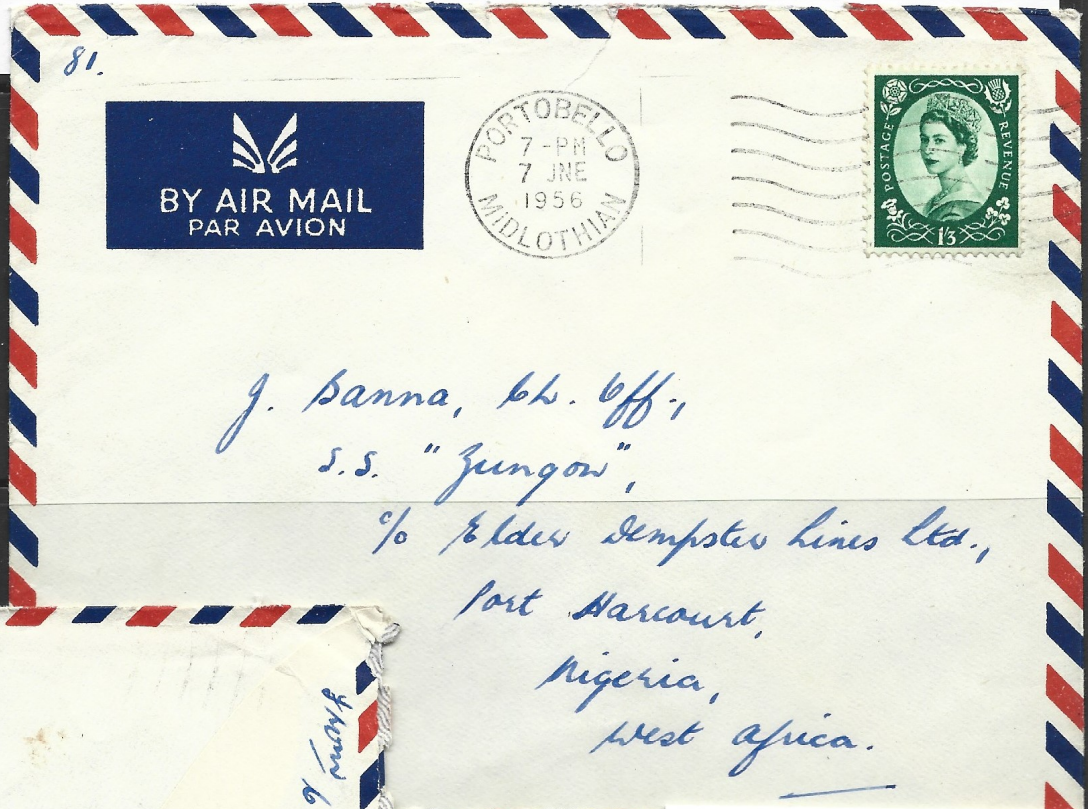 81.
BY AIR MAIL
PAR AVION
PORTOBELLO
7-PM
7 JNE
1956
MIDLOTHIAN
POSTAGE
REVENUE
1/3
J. Banna, Ch. Off.,
S.S. "Zungon",
c/o Elder Dempster Lines Ltd.,
Port Harcourt,
Nigeria,
West Africa.